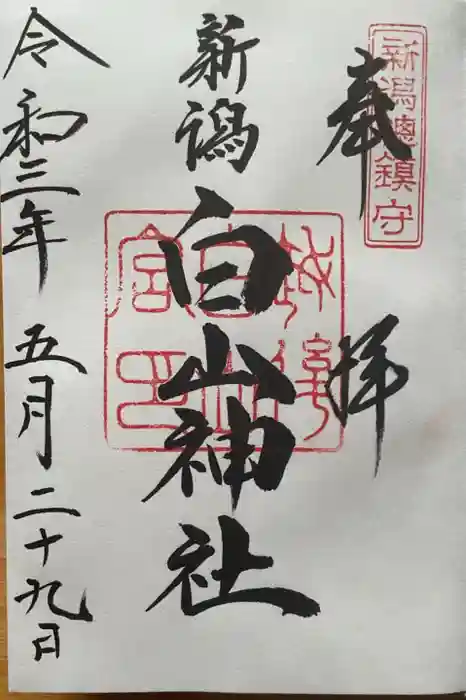 奉拝
新潟總鎮守
新潟白山神社
越後白山宮印
令和三年五月二十九日